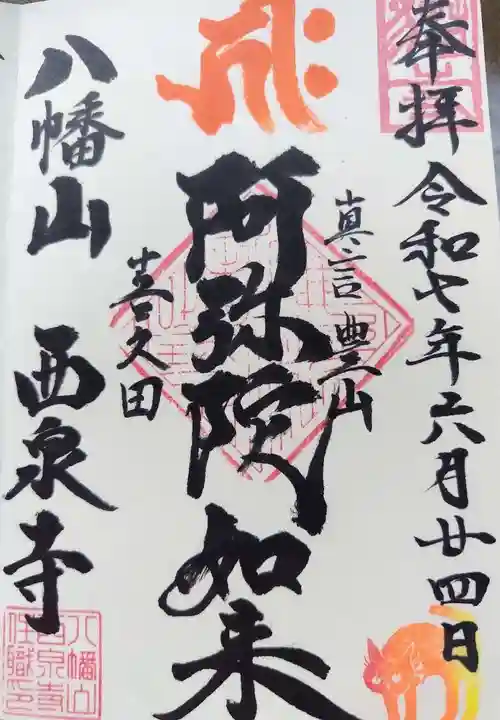 奉拝
令和七年六月廿四日
真言豊山
阿弥陀如来
喜久田
八幡山
西泉寺
八幡山
西泉寺
住職印